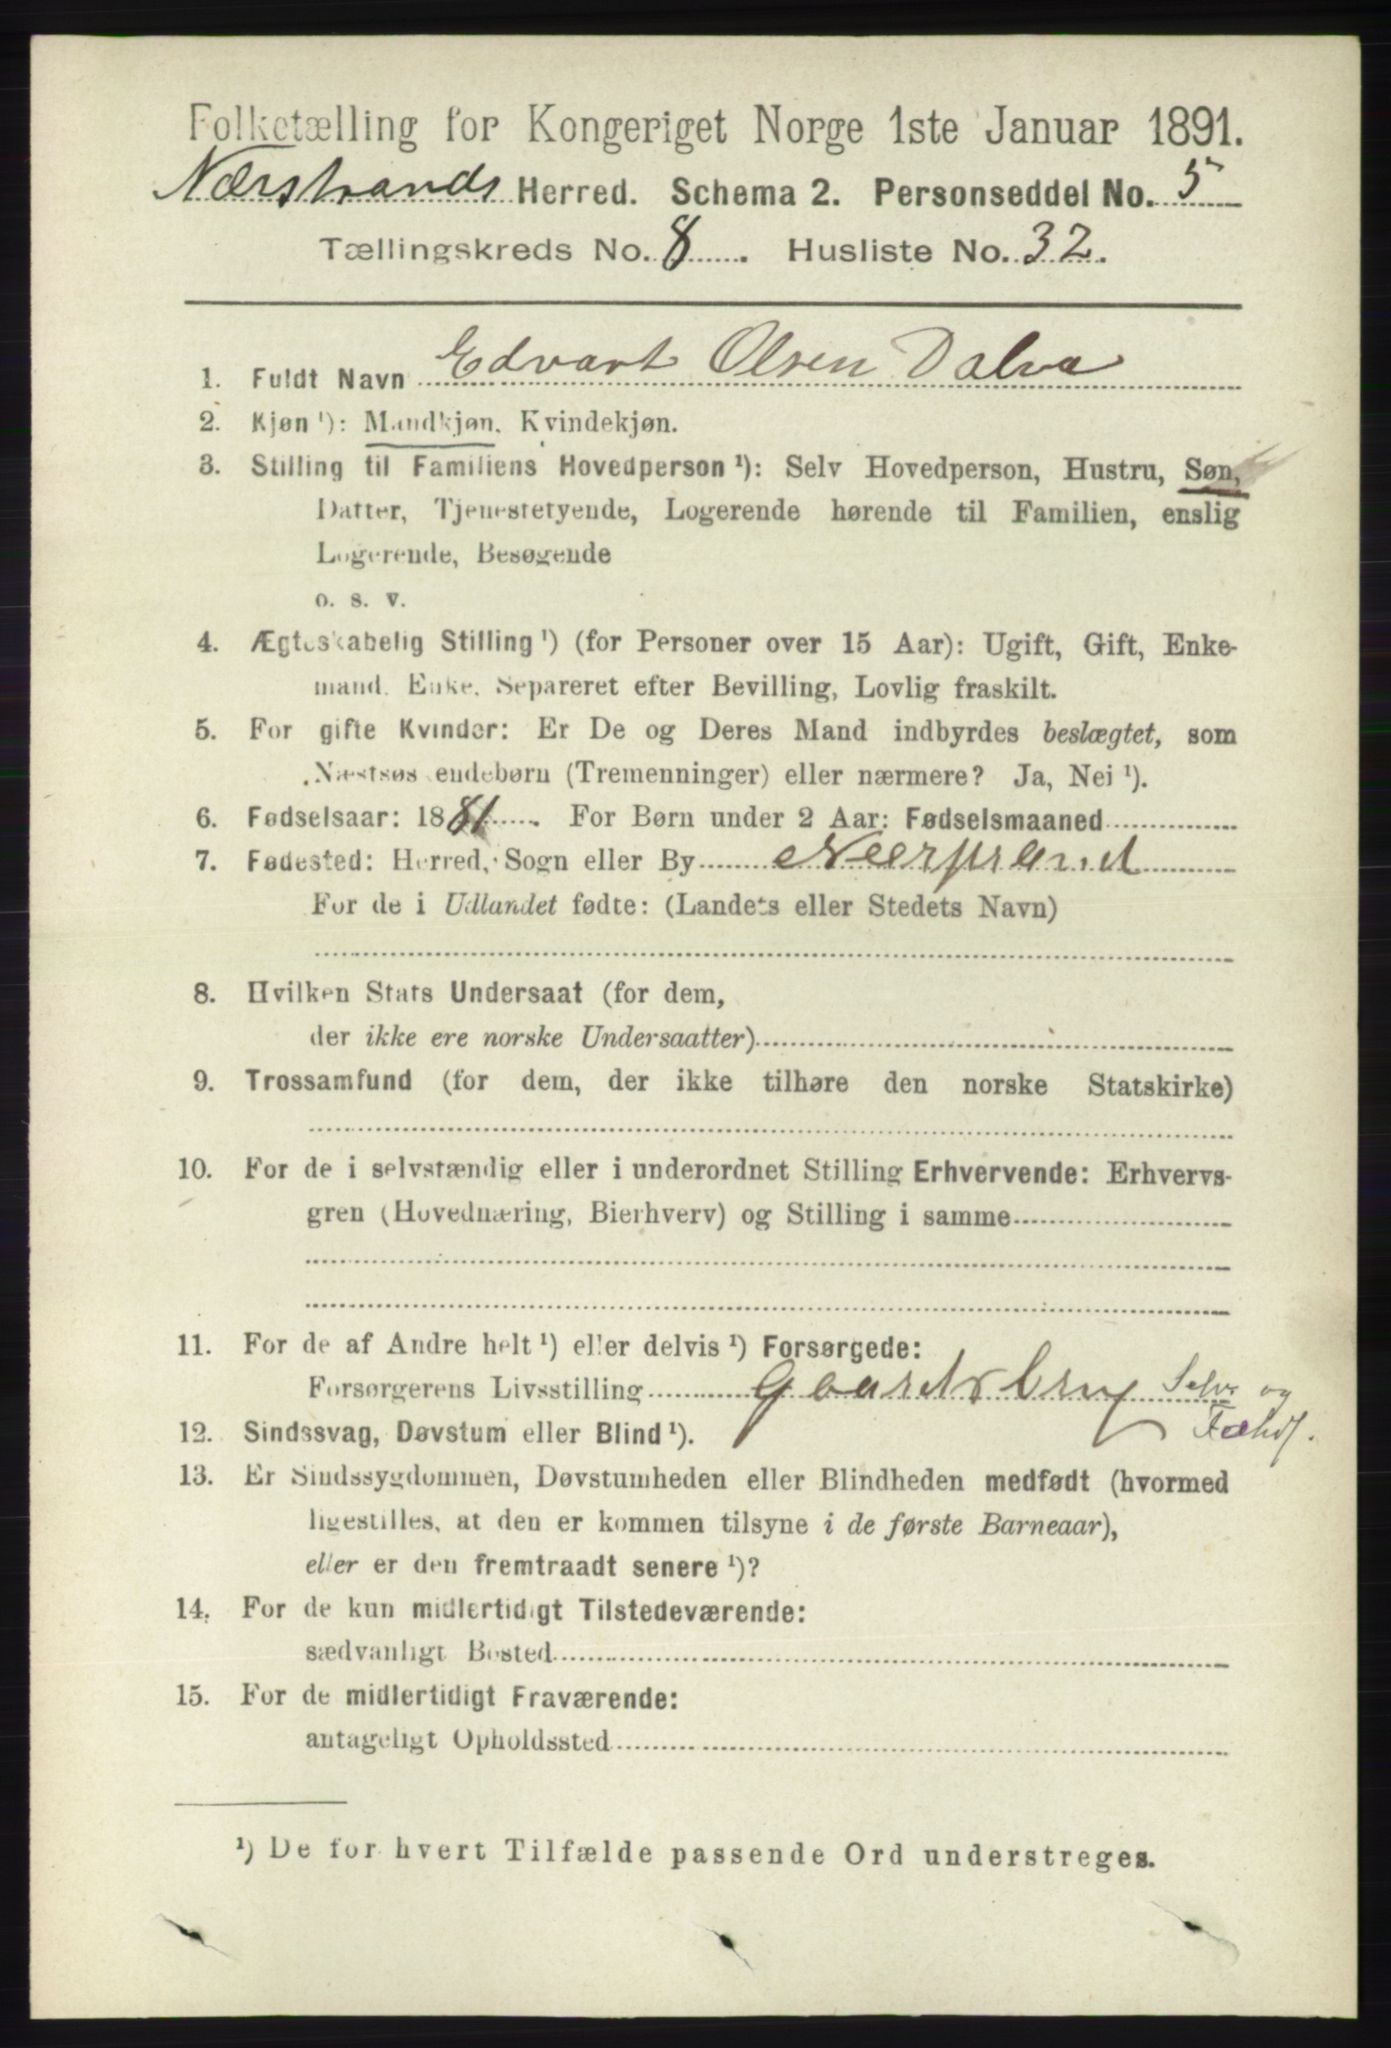 Folketælling for Kongeriget Norge 1ste Januar 1891.
Nærstrands Herred. Schema 2. Personseddel No. 5
Tællingskreds No. 8. Husliste No. 32.
1. Fuldt Navn Edvart Olsen Dalva
2. Kjøn ¹): Mandkjøn. Kvindekjøn.
3. Stilling til Familiens Hovedperson ¹): Selv Hovedperson, Hustru, Søn,
Datter, Tjenestetyende, Logerende hørende til Familien, enslig
Logerende, Besøgende
o. s. v.
4. Ægteskabelig Stilling ¹) (for Personer over 15 Aar): Ugift, Gift, Enke-
mand, Enke, Separeret efter Bevilling, Lovlig fraskilt.
5. For gifte Kvinder: Er De og Deres Mand indbyrdes beslægtet, som
Næstsøskendebørn (Tremenninger) eller nærmere? Ja, Nei ¹).
6. Fødselsaar: 1881. For Børn under 2 Aar: Fødselsmaaned
7. Fødested: Herred, Sogn eller By Nærstrand
For de i Udlandet fødte: (Landets eller Stedets Navn)
8. Hvilken Stats Undersaat (for dem,
der ikke ere norske Undersaatter)
9. Trossamfund (for dem, der ikke tilhøre den norske Statskirke)
10. For de i selvstændig eller i underordnet Stilling Erhvervende: Erhvervs-
gren (Hovednæring, Bierhverv) og Stilling i samme
11. For de af Andre helt ¹) eller delvis ¹) Forsørgede:
Forsørgerens Livsstilling Gaardbrug Selv og
12. Sindssvag, Døvstum eller Blind ¹).
13. Er Sindssygdommen, Døvstumheden eller Blindheden medfødt (hvormed
ligestilles, at den er kommen tilsyne i de første Barneaar),
eller er den fremtraadt senere ¹)?
14. For de kun midlertidigt Tilstedeværende:
sædvanligt Bosted
15. For de midlertidigt Fraværende:
antageligt Opholdssted
¹) De for hvert Tilfælde passende Ord understreges.